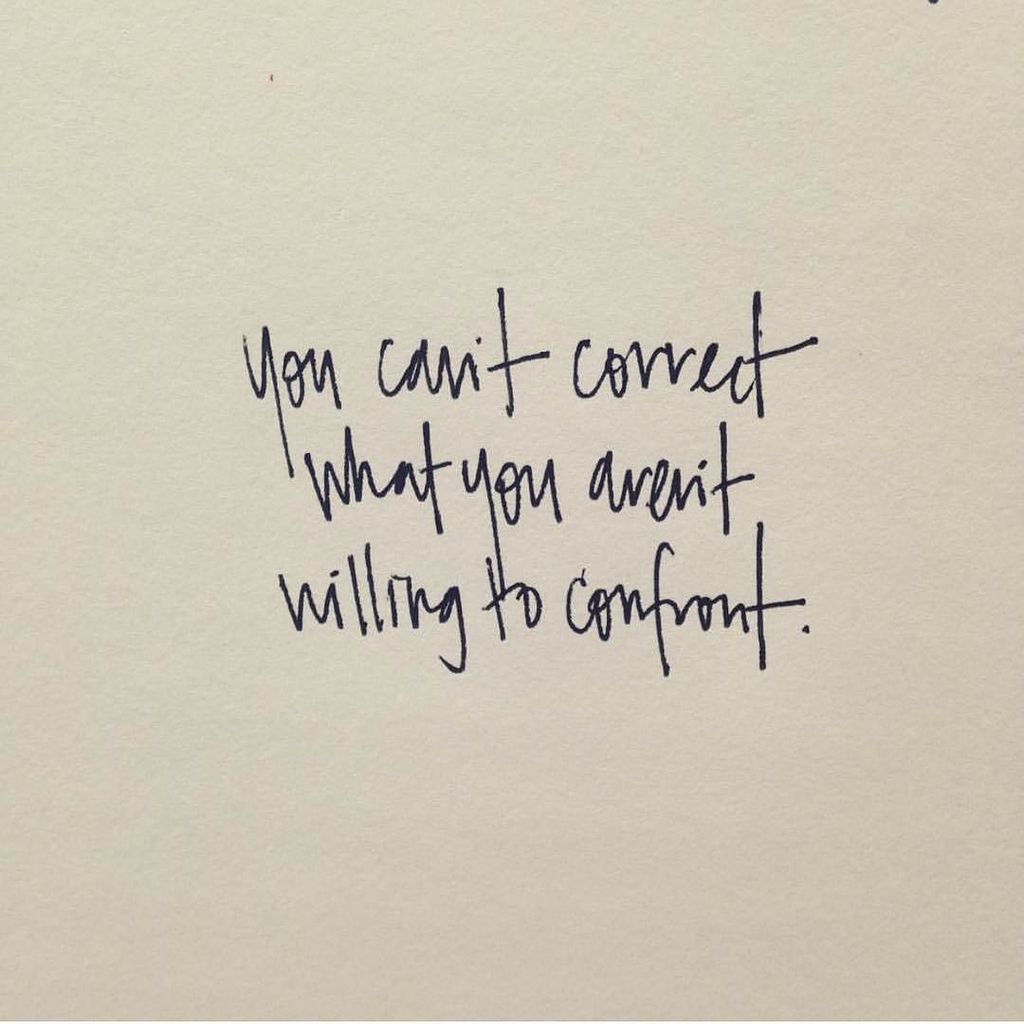 you can't correct
what you aren't
willing to confront.